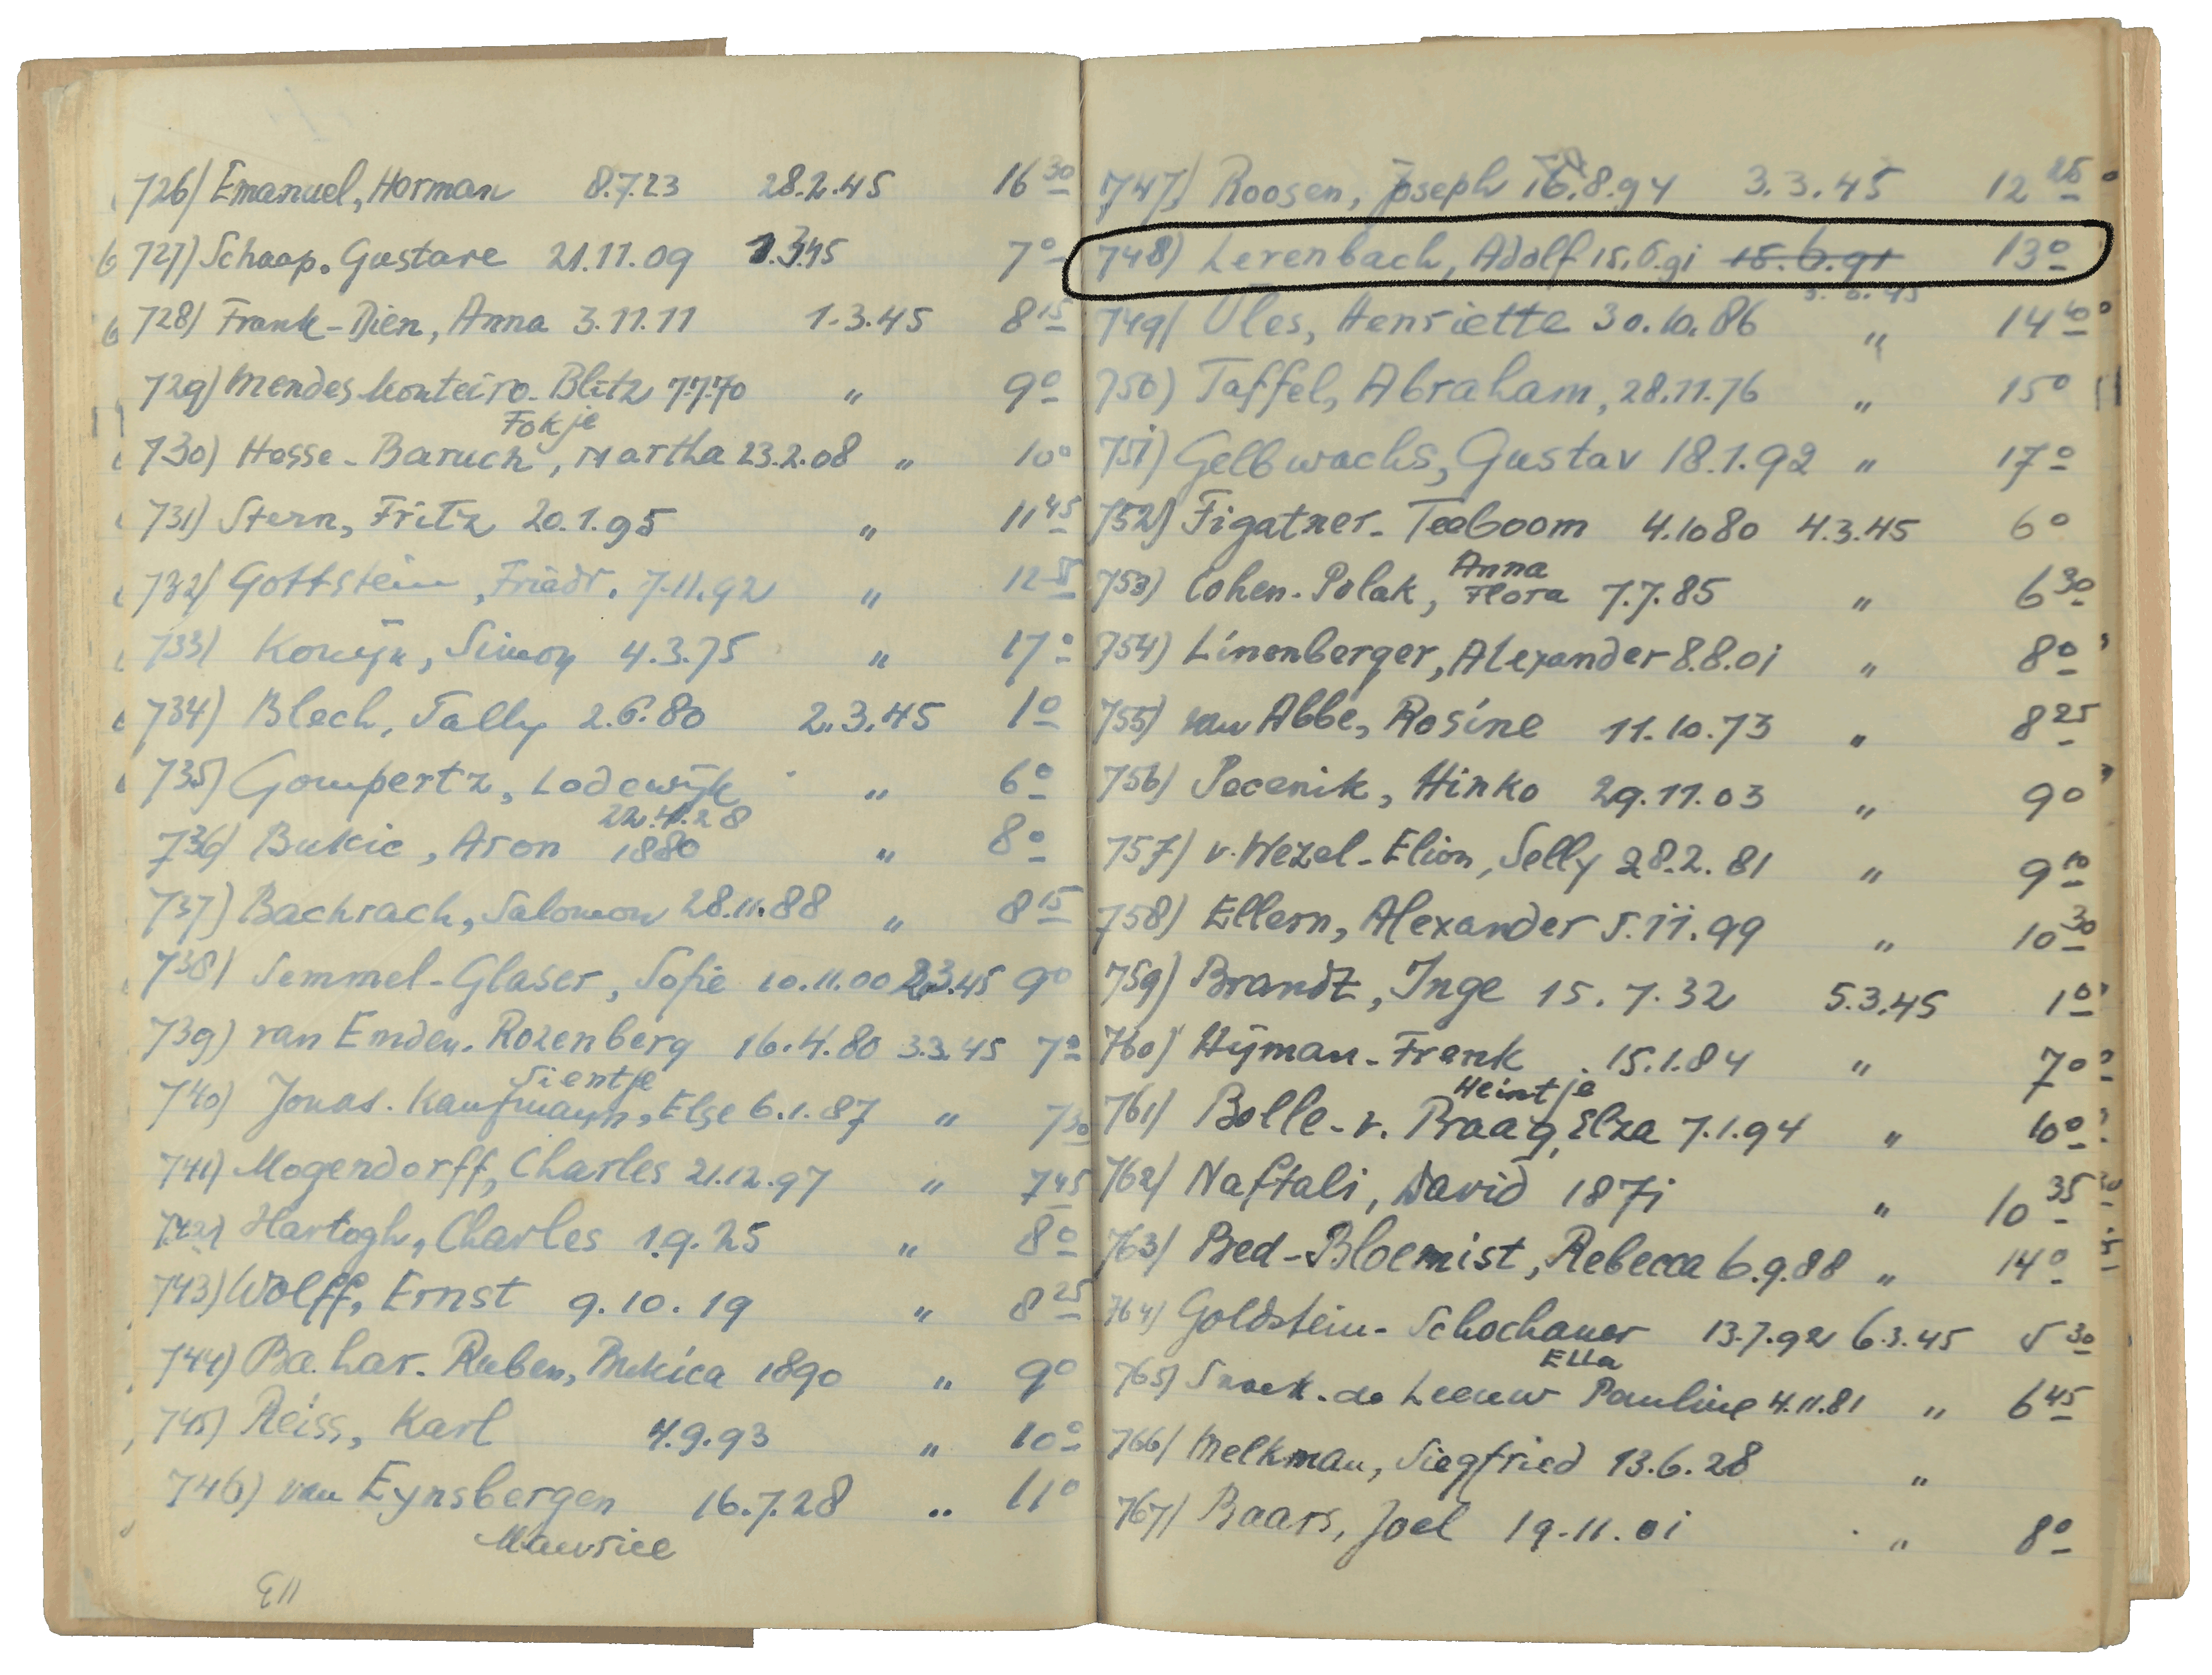 726) Emanuel, Herman 8.7.23 28.2.45 16 30
727) Schaap. Gustave 21.11.09 1.3.45 7 0
728) Frank-Dien, Anna 3.11.11 1.3.45 8 15
729) Mendes Monteiro-Blitz 7.7.70 " 9 0
Fokje
730) Hesse-Baruch, Martha 23.2.08 " 10 0
731) Stern, Fritz 20.1.95 " 11 45
732) Gottstein, Friedr. 7.11.92 " 12
733) Konijn, Simon 4.3.75 " 17 0
734) Blech, Sally 2.6.80 2.3.45 1 0
735) Gompertz, Lodewijk " 6 0
22.4.28
736) Bukic, Aron 1880 " 8 0
737) Bachrach, Salomon 28.11.88 " 8 15
738) Semmel-Glaser, Sofie 10.11.00 2.3.45 9 0
739) van Emden-Rozenberg 16.4.80 3.3.45 7 0
Sientje
740) Jonas-Kaufmann, Else 6.1.87 " 7 30
741) Mogendorff, Charles 21.12.97 " 7 45
742) Hartogh, Charles 1.9.25 " 8 0
743) Wolff, Ernst 9.10.19 " 8 25
744) Bahar-Ruben, Bukica 1890 " 9 0
745) Reiss, Karl 4.9.93 " 10 0
746) van Eynsbergen 16.7.28 " 11 0
Maurice
113
747) Roosen, Joseph 16.8.94 3.3.45 12 25
748) Levenbach, Adolf 15.6.91 15.6.91 13 0
3.3.45
749) Oles, Henriette 30.10.86 " 14 40
750) Taffel, Abraham, 28.11.76 " 15 0
751) Gelbwachs, Gustav 18.1.92 " 17 0
752) Figatner-Teeboom 4.10 80 4.3.45 6 0
Anna
753) Cohen-Polak, Flora 7.7.85 " 6 30
754) Linenberger, Alexander 8.8.01 " 8 0
755) van Abbe, Rosine 11.10.73 " 8 25
756) Pecenik, Hinko 29.11.03 " 9 0
757) v. Wezel-Elion, Selly 28.2.81 " 9 10
758) Ellern, Alexander 5.11.99 " 10 30
759) Brandt, Inge 15.7.32 5.3.45 1 0
760) Hijman-Frank 15.1.84 " 7 0
Heintje
761) Bolle-v. Praag, Elza 7.1.94 " 10 0
762) Naftali, David 1871 " 10 35
763) Bed-Bloemist, Rebecca 6.9.88 " 14 0
764) Goldstein-Schochauer 13.7.92 6.3.45 5 30
Ella
765) Snoek-de Leeuw Pauline 4.11.81 " 6 45
766) Melkman, Siegfried 13.6.28 "
767) Baars, Joel 19.11.01 " 8 0